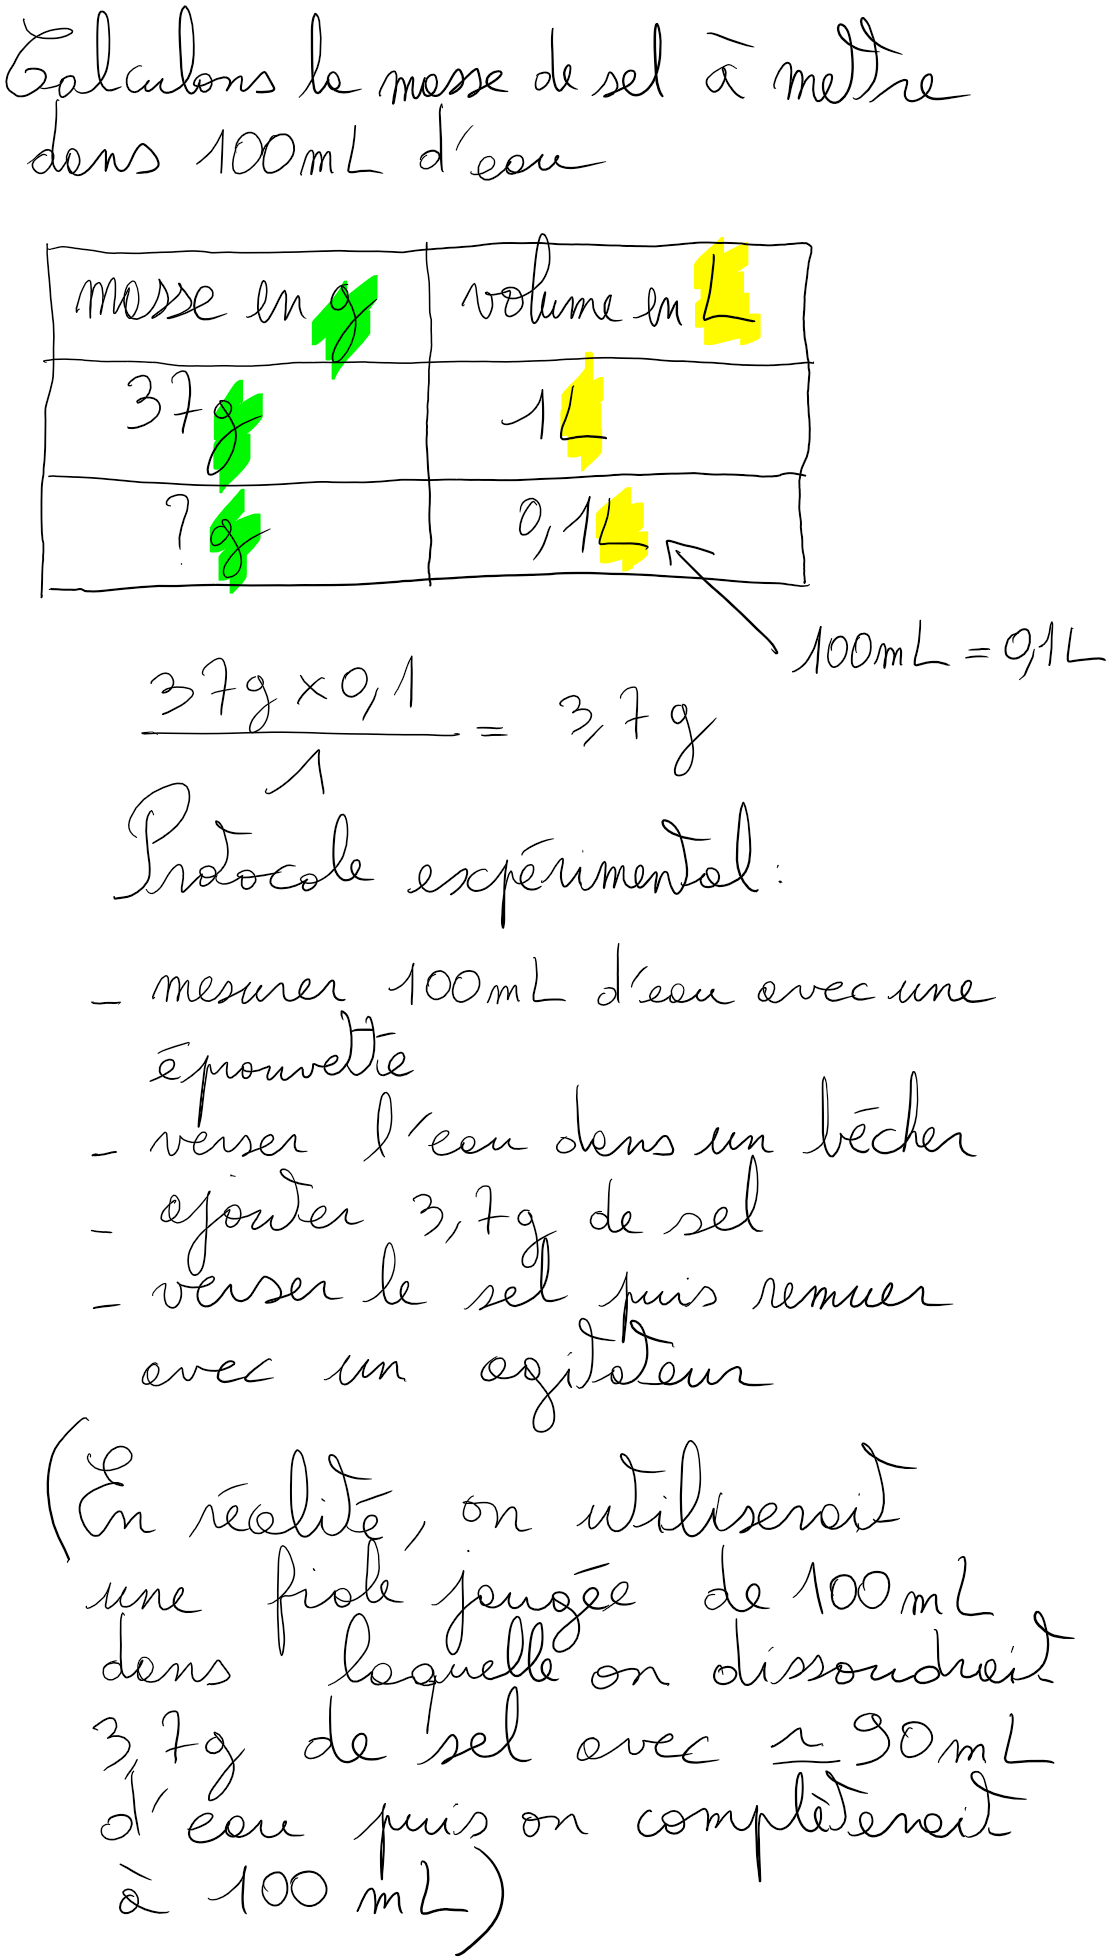 Calculons la masse de sel à mettre
dans 100mL d'eau
masse en g volume en L
37g 1L
? g 0,1L
100mL = 0,1L
37g × 0,1
= 3,7g
1
Protocole expérimental :
- mesurer 100mL d'eau avec une
éprouvette
- verser l'eau dans un bécher
- ajouter 3,7g de sel
- verser le sel puis remuer
avec un agitateur
(En réalité, on utiliserait
une fiole jaugée de 100mL
dans laquelle on dissoudrait
3,7g de sel avec ≃ 90mL
d'eau puis on complèterait
à 100 mL)